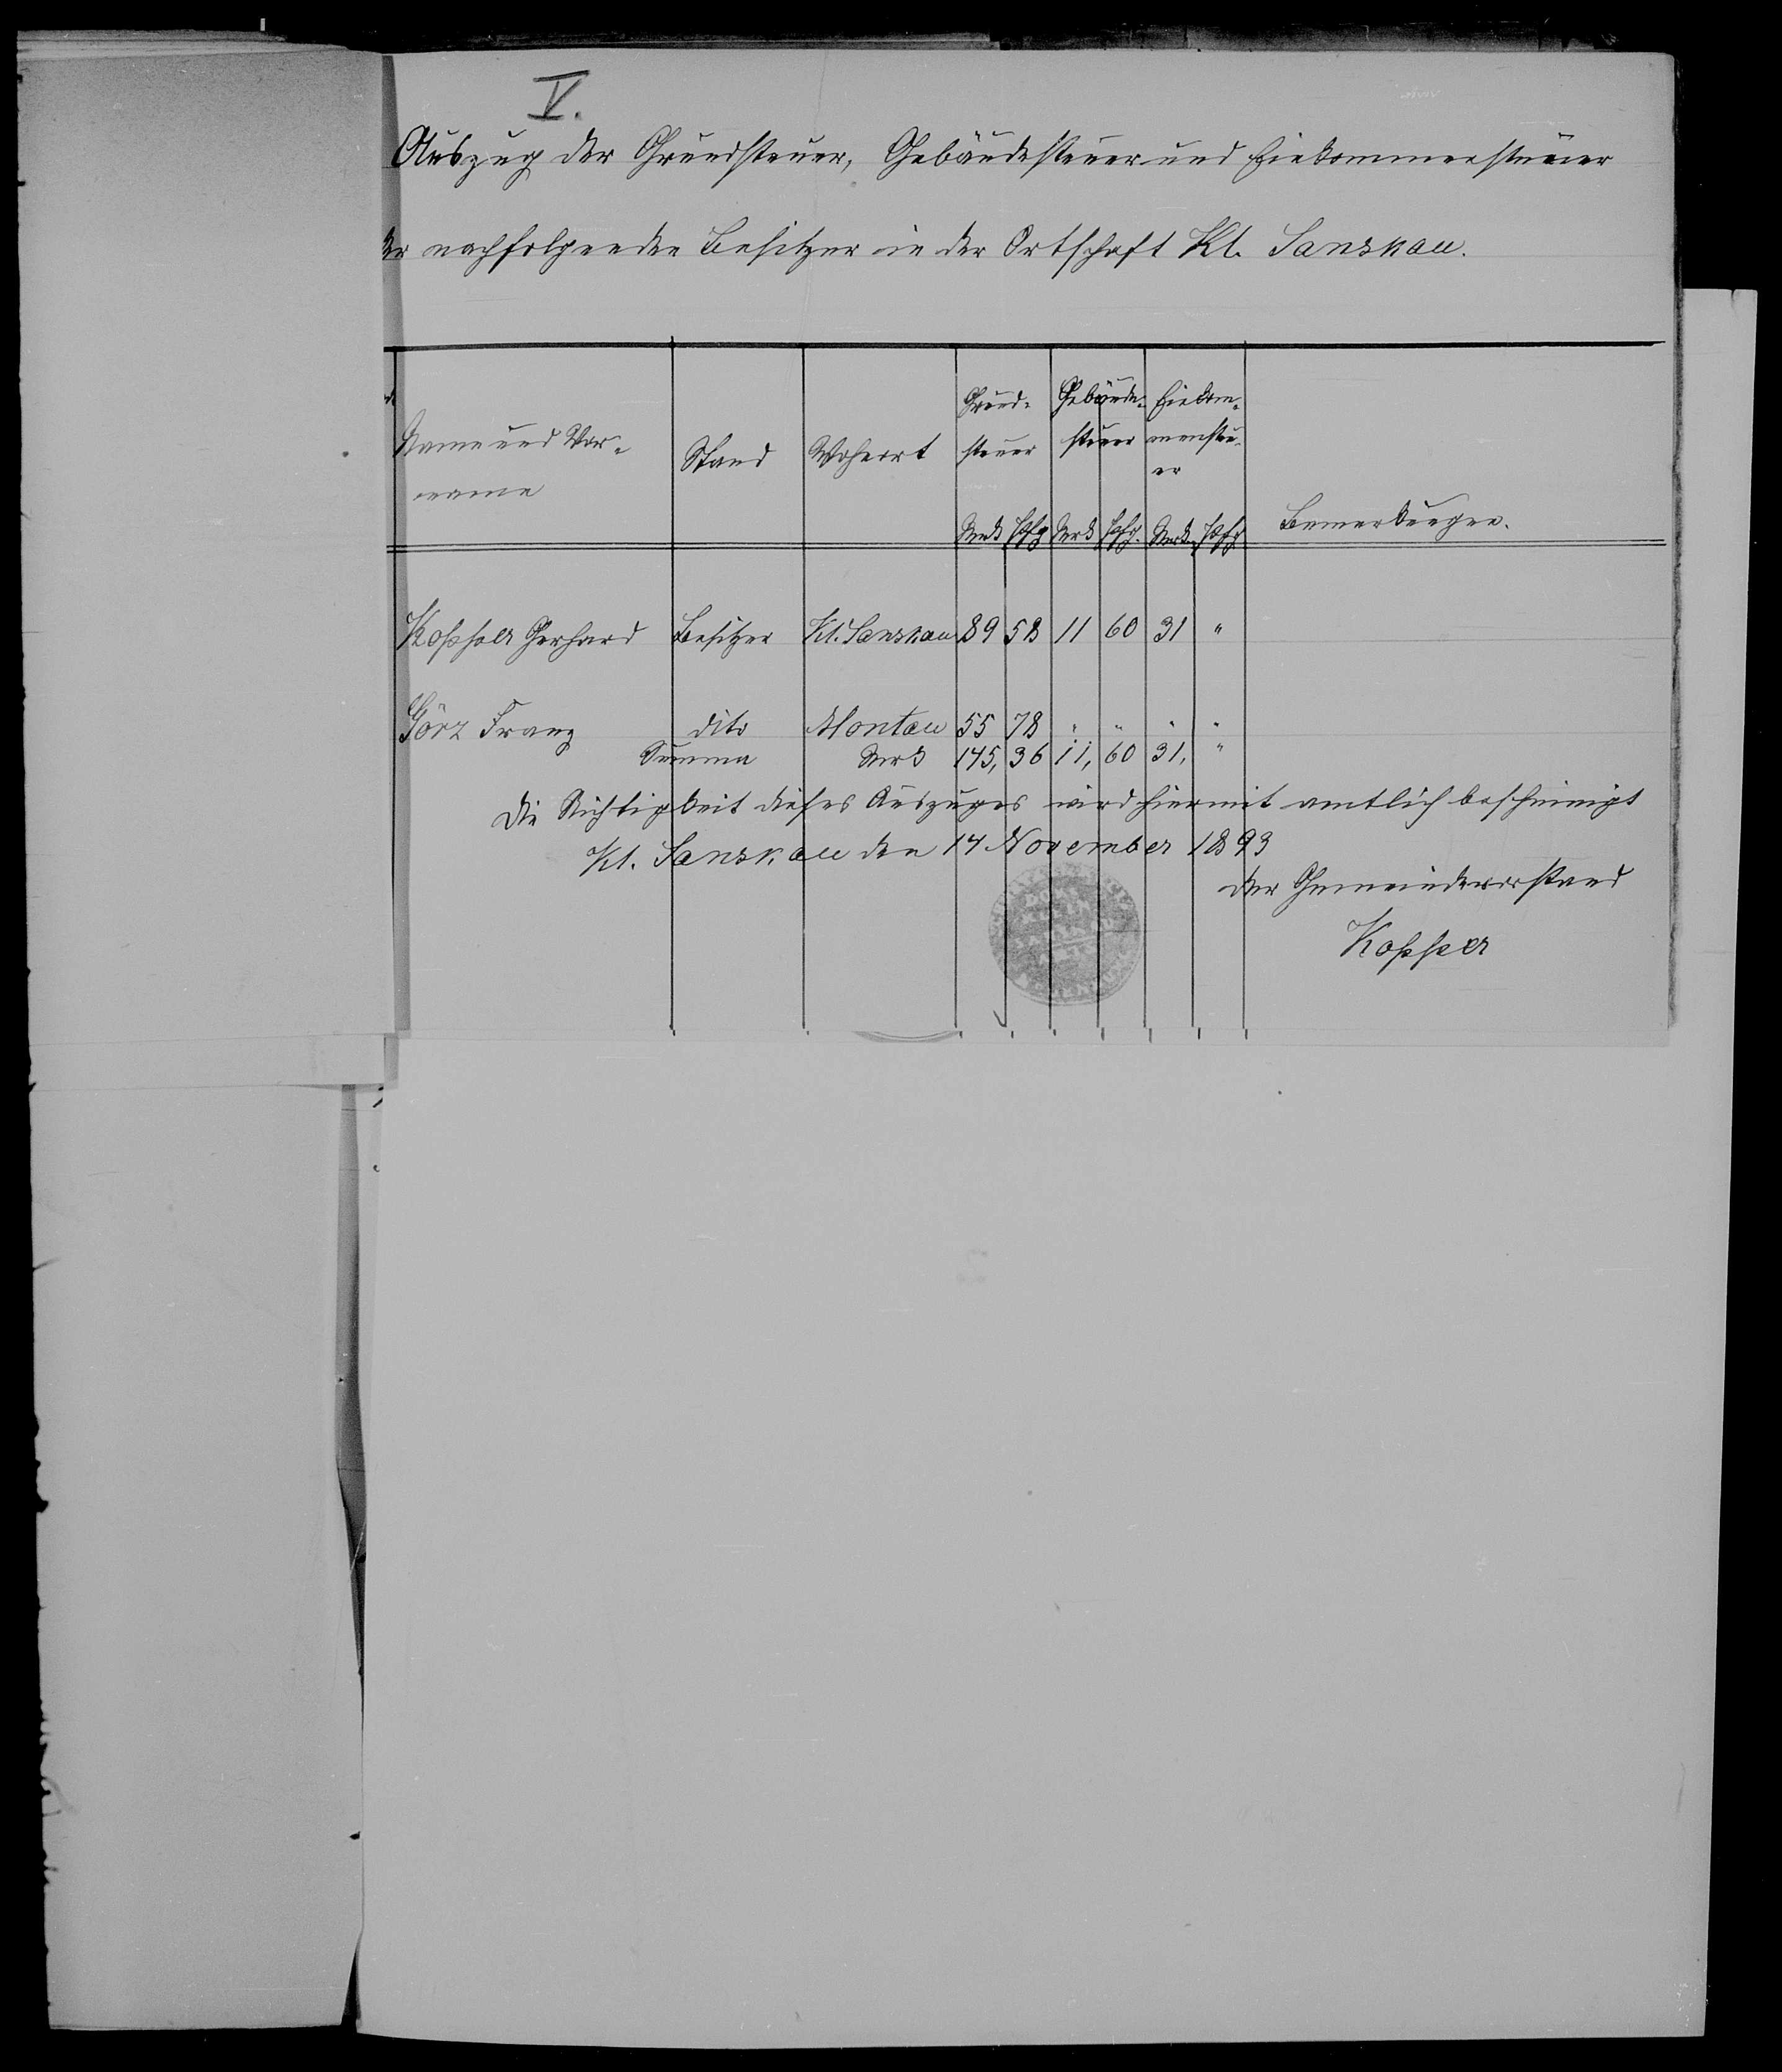 V.
Auszug der Grundsteuer, Gebäudesteuer und Einkommensteuer
der nachfolgenden Besitzer in der Ortschaft Kl. Sanskau.
Name und Vor-
name
Stand
Wohnort
Grund-
steuer
Gebäude-
steuer
Einkom-
menste-
er
Mrk Pfg Mrk Pfg. Mrk. Pfg
Bemerkungen.
Kopper Gerhard Besitzer Kl. Sanskau 89 58 11 60 31 "
Görz Franz dito Montau 55 78 " " " "
Summa Mrk 145, 36 11, 60 31, "
Die Richtigkeit dieses Auszuges wird hiermit amtlich bescheinigt
Kl. Sanskau den 14 November 1893
Der Gemeindevorstand
Kopper